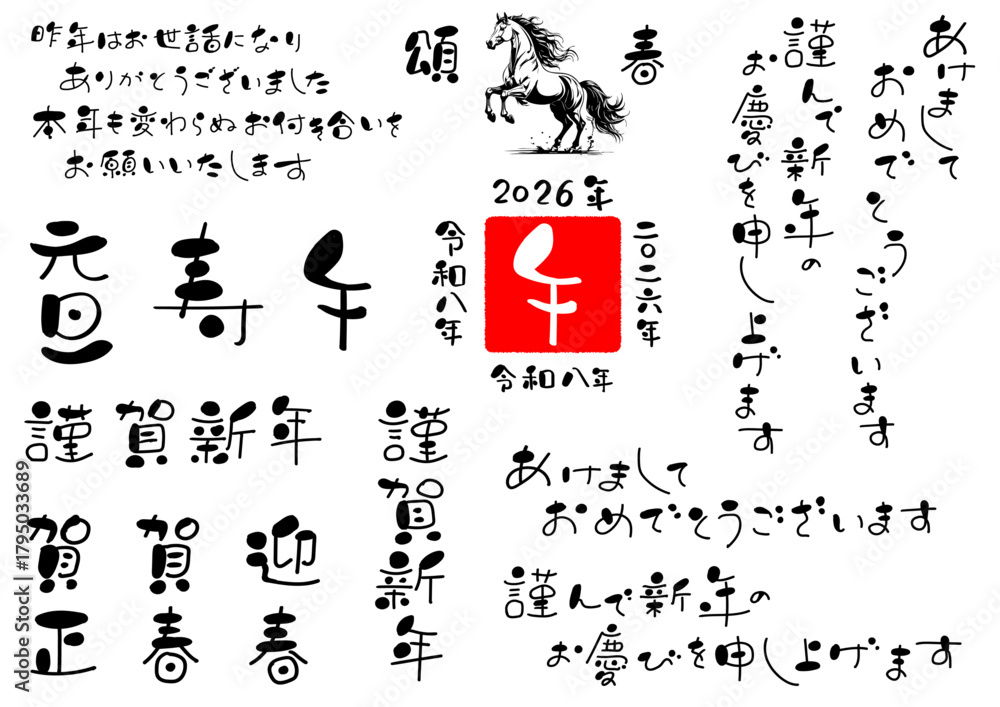 昨年はお世話になり
ありがとうございました
本年も変わらぬお付き合いを
お願いいたします
頌春
2026年
令和八年
午
二〇二六年
令和八年
謹んで新年の
お慶びを申し上げます
あけまして
おめでとうございます
元旦
寿
午
謹賀新年
賀正
賀春
迎春
謹賀新年
あけまして
おめでとうございます
謹んで新年の
お慶びを申し上げます
Adobe Stock | #1795033689